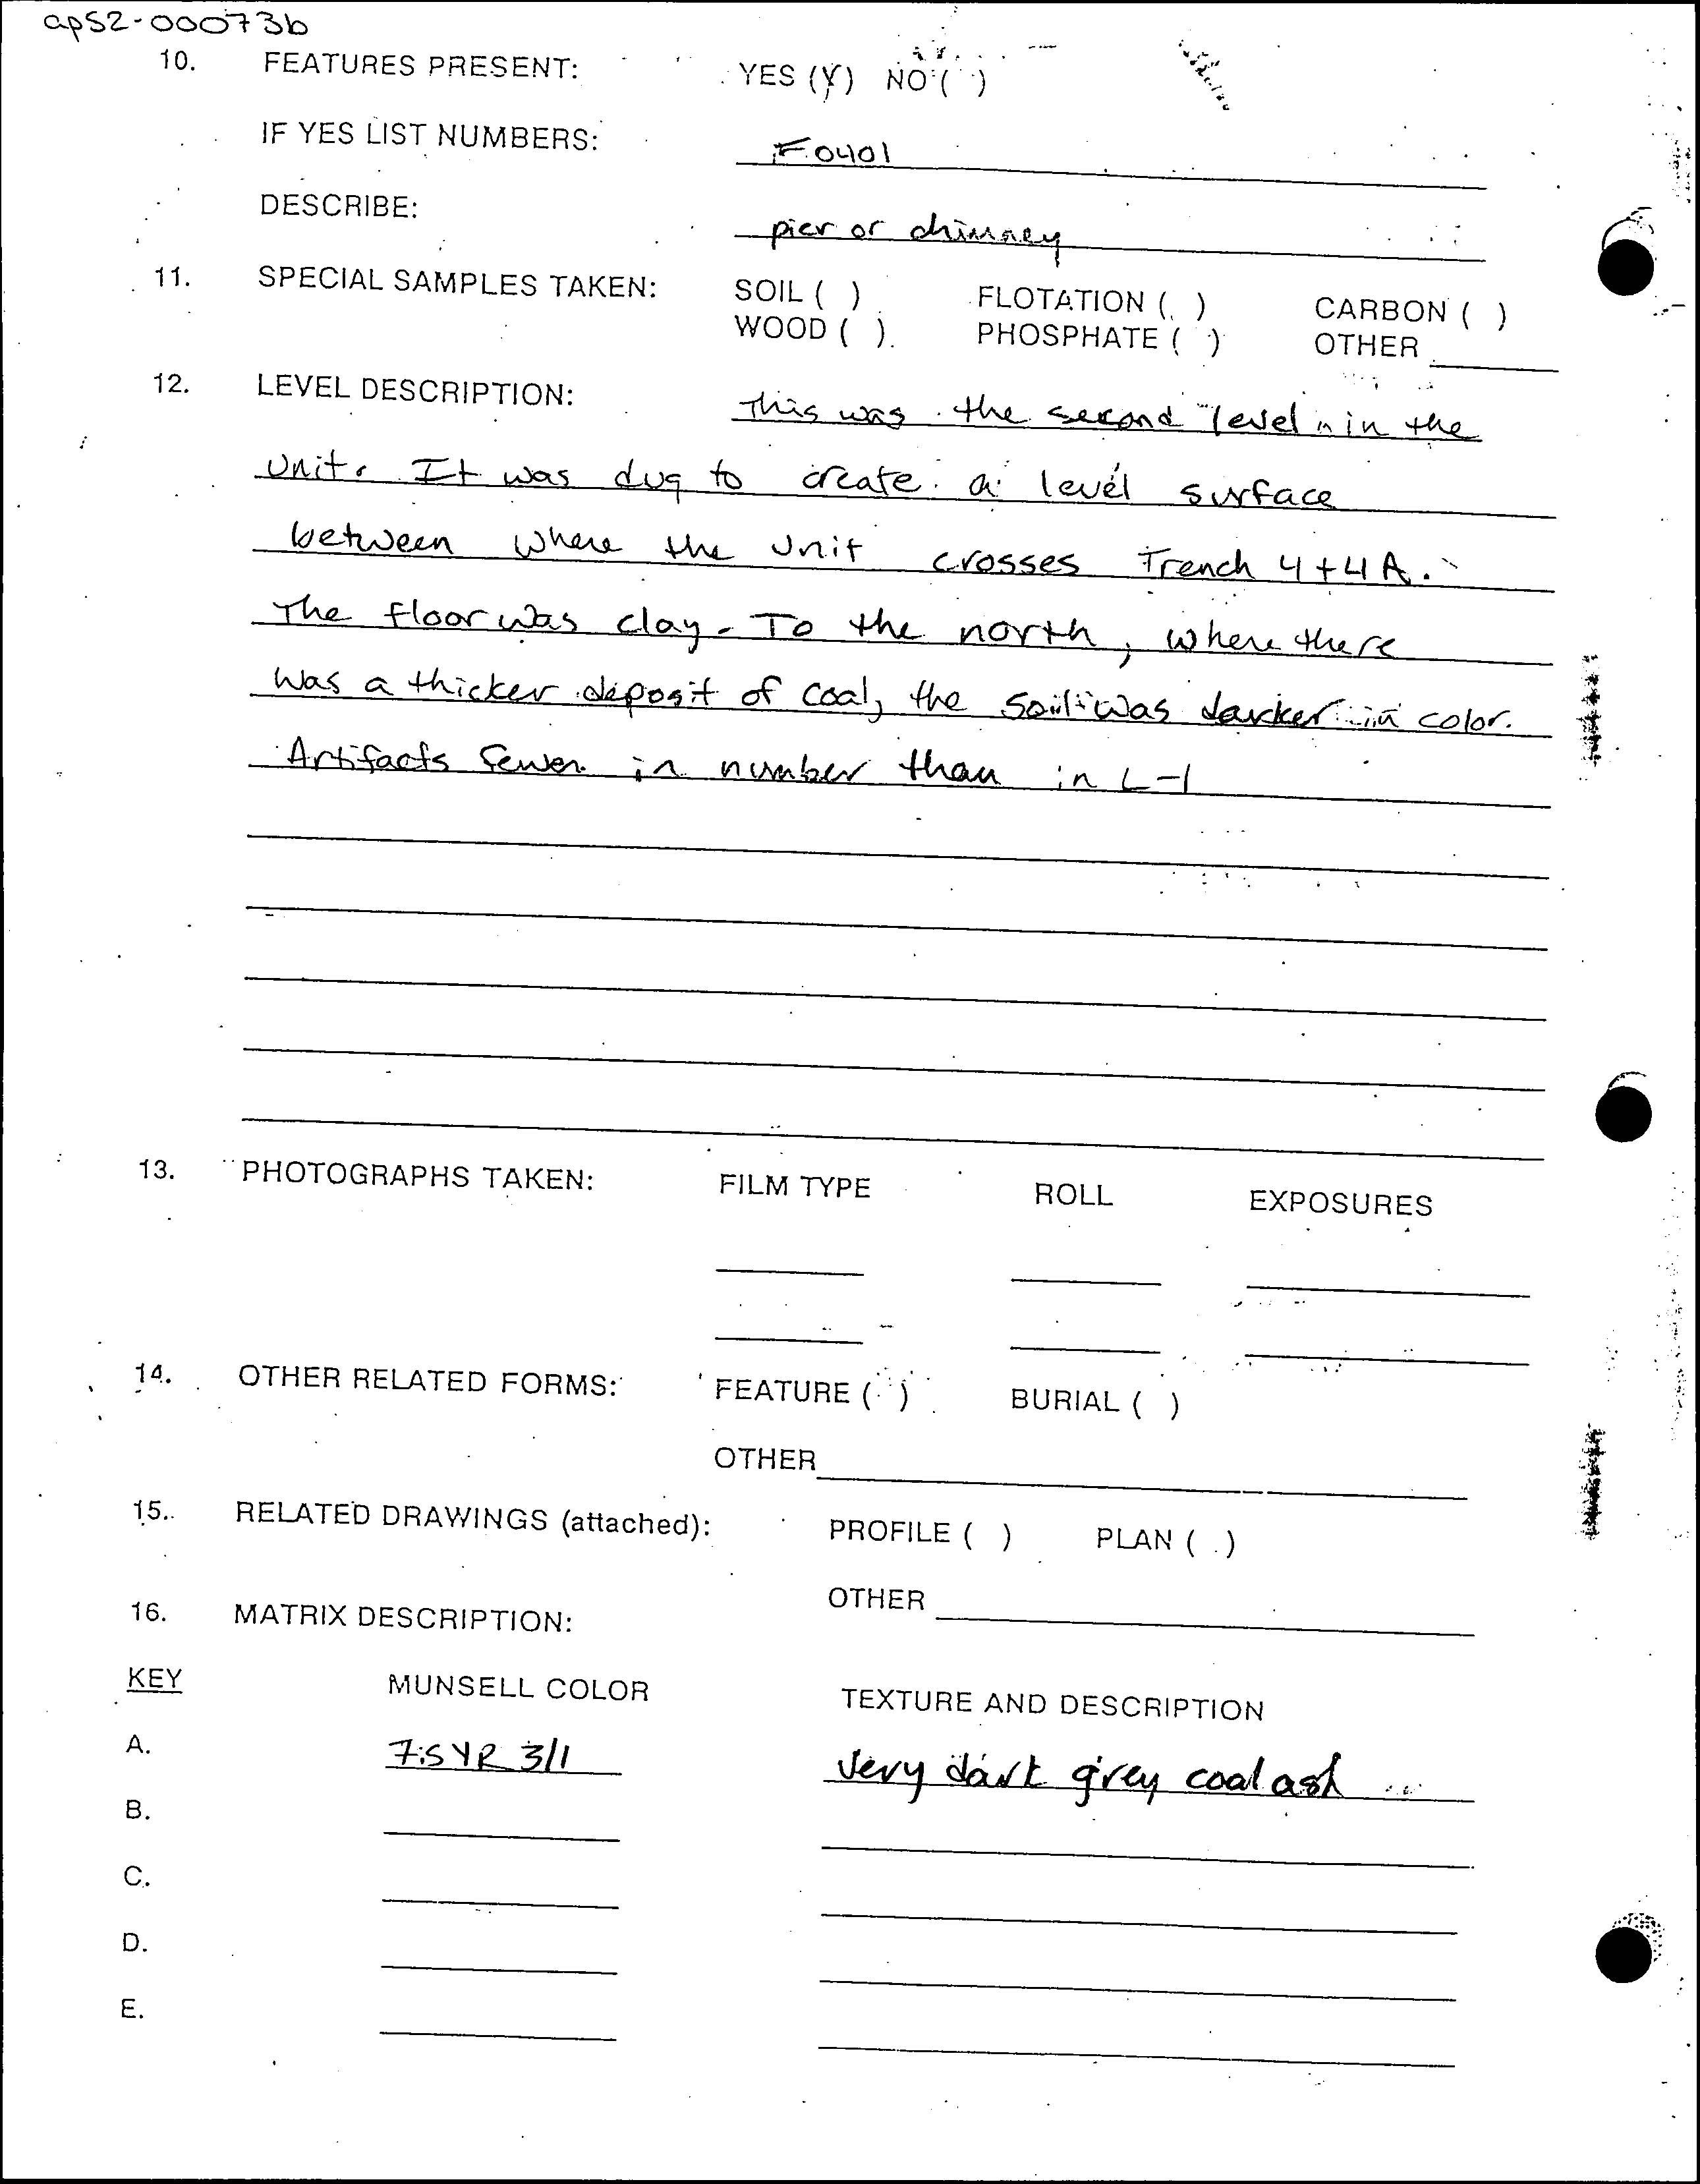 apS2-00073b
10. FEATURES PRESENT: YES (Y) NO ( )
IF YES LIST NUMBERS: F0401
DESCRIBE: pier or chimney
11. SPECIAL SAMPLES TAKEN: SOIL ( ) FLOTATION ( ) CARBON ( )
WOOD ( ) PHOSPHATE ( ) OTHER
12. LEVEL DESCRIPTION: This was the second level in the
unit. It was dug to create a level surface
between where the unit crosses Trench 4 + 4A.
The floor was clay. To the north, where there
was a thicker deposit of coal, the soil was darker in color.
Artifacts fewer in number than in L-1
13. PHOTOGRAPHS TAKEN: FILM TYPE ROLL EXPOSURES
14. OTHER RELATED FORMS: FEATURE ( ) BURIAL ( )
OTHER
15. RELATED DRAWINGS (attached): PROFILE ( ) PLAN ( )
OTHER
16. MATRIX DESCRIPTION:
KEY MUNSELL COLOR TEXTURE AND DESCRIPTION
A. 7.5YR 3/1 very dark grey coal ash
B.
C.
D.
E.